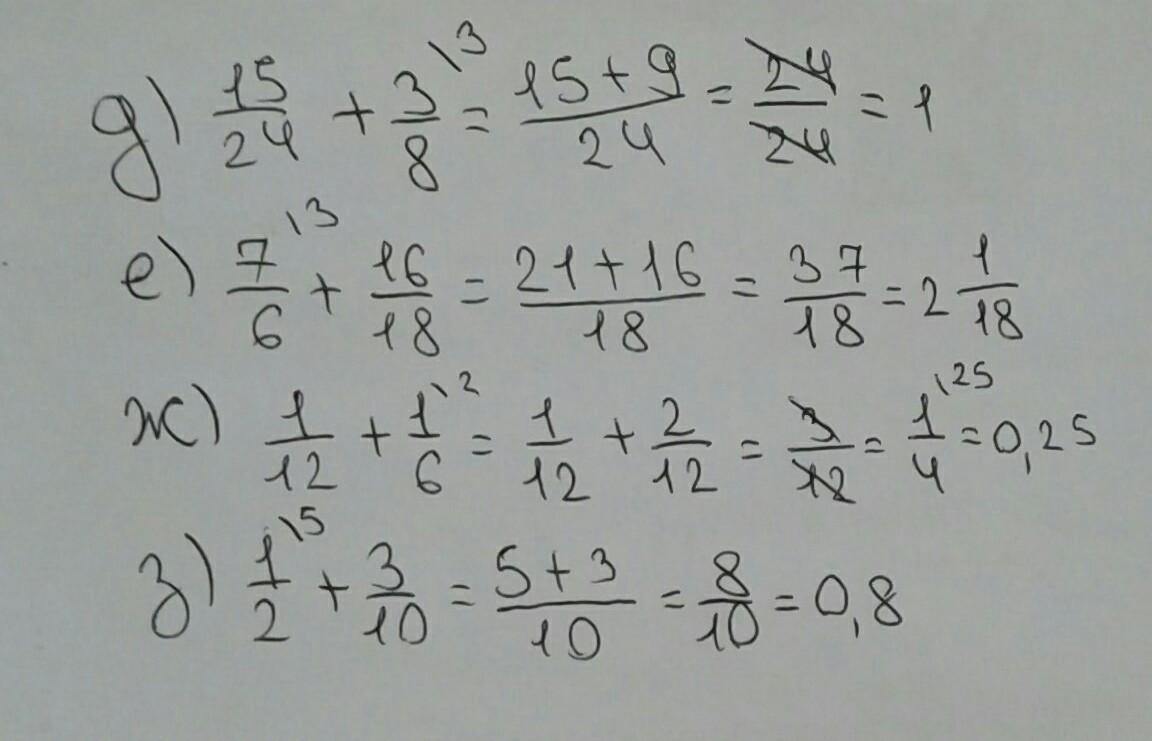 д) 15/24 + 3/8 \3 = 15+9/24 = 24/24 = 1
е) 7/6 \3 + 16/18 = 21+16/18 = 37/18 = 2 1/18
ж) 1/12 + 1/6 \2 = 1/12 + 2/12 = 3/12 = 1/4 \25 = 0,25
з) 1/2 \5 + 3/10 = 5+3/10 = 8/10 = 0,8